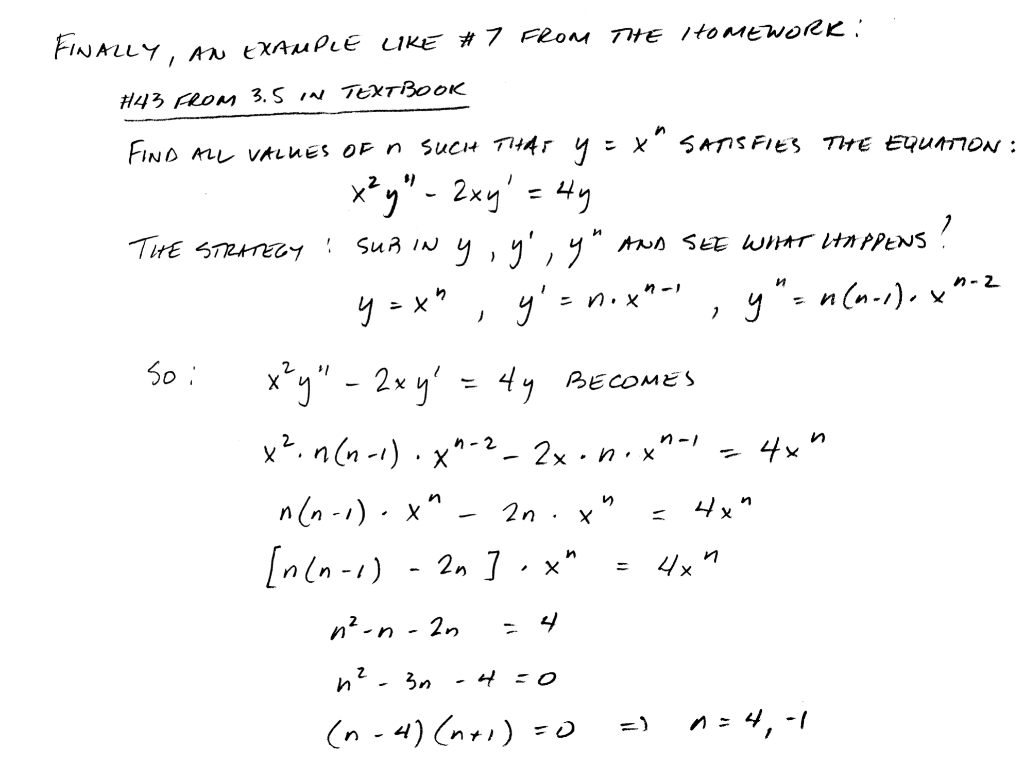 FINALLY, AN EXAMPLE LIKE #7 FROM THE HOMEWORK:
#43 FROM 3.5 IN TEXTBOOK
FIND ALL VALUES OF n SUCH THAT y = xⁿ SATISFIES THE EQUATION:
x²y" - 2xy' = 4y
THE STRATEGY: SUB IN y, y', y" AND SEE WHAT HAPPENS!
y = xⁿ, y' = n·xⁿ⁻¹, y" = n(n-1)·xⁿ⁻²
SO: x²y" - 2xy' = 4y BECOMES
x²·n(n-1)·xⁿ⁻² - 2x·n·xⁿ⁻¹ = 4xⁿ
n(n-1)·xⁿ - 2n·xⁿ = 4xⁿ
[n(n-1) - 2n]·xⁿ = 4xⁿ
n²-n-2n = 4
n² - 3n - 4 = 0
(n-4)(n+1) = 0 => n = 4, -1